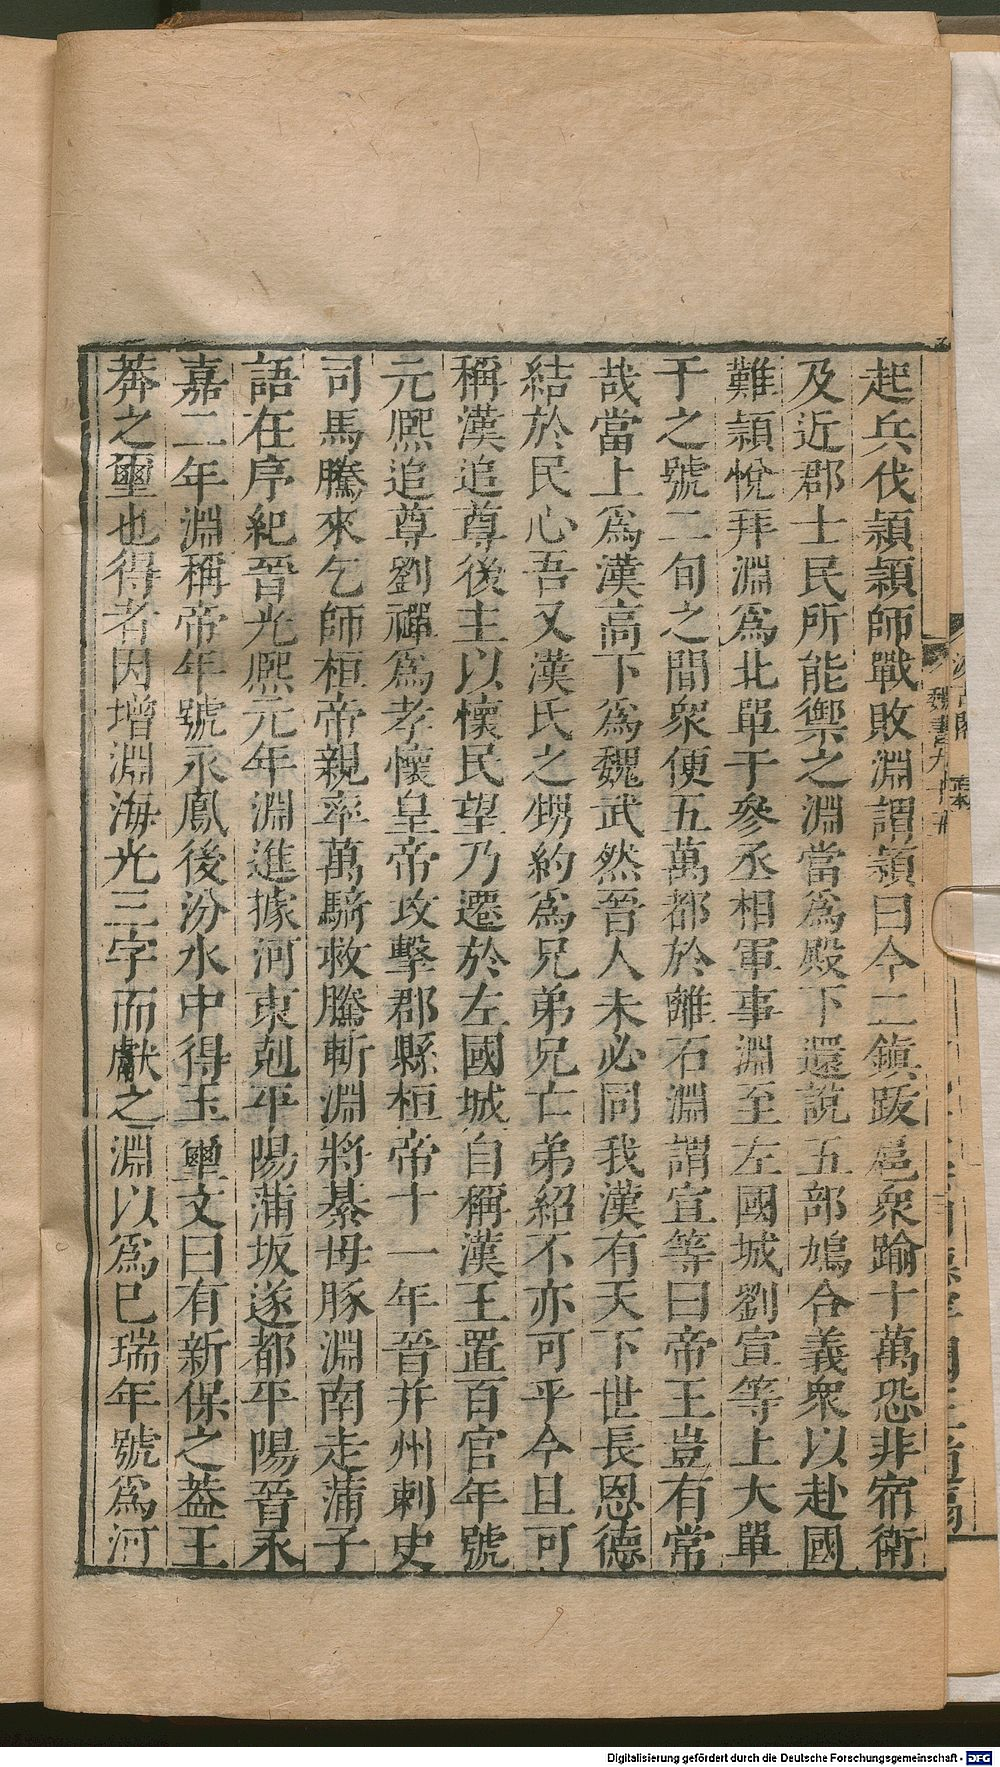 起兵伐穎穎師戰敗淵謂穎曰今二鎮跋扈衆踰十萬恐非宿衛
及近郡士民所能禦之淵當爲殿下還說五部鳩合義衆以赴國
難穎悅拜淵爲北單于參丞相軍事淵至左國城劉宣等上大單
于之號二旬之間衆便五萬都於離石淵謂宣等曰帝王豈有常
哉當上爲漢高下爲魏武然晉人未必同我漢有天下世長恩德
結於民心吾又漢氏之甥約爲兄弟兄亡弟紹不亦可乎今且可
稱漢追尊後主以懷民望乃遷於左國城自稱漢王置百官年號
元熙追尊劉禪爲孝懷皇帝攻擊郡縣桓帝十一年晉并州刺史
司馬騰來乞師桓帝親率萬騎救騰斬淵將綦毋豚淵南走蒲子
語在序紀晉光熙元年淵進據河東剋平陽蒲坂遂都平陽晉永
嘉二年淵稱帝年號永鳳後汾水中得玉璽文曰有新保之蓋王
莽之璽也得者因增淵海光三字而獻之淵以爲己瑞年號爲河
汲古閣
魏書九十五
Digitalisierung gefördert durch die Deutsche Forschungsgemeinschaft - DFG